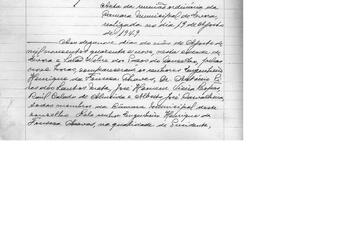 Acta da reunião ordinária da
Câmara Municipal de Évora,
realizada no dia 19 de Agosto
de 1949.
Aos dezanove dias do mês de Agosto de
mil novecentos quarenta e nove, nesta cidade de
Évora e Salão Nobre dos Paços do Concelho, pelas
nove horas, compareceram os senhores Engenheiro
Henrique da Fonseca Chaves, Dr. António
dos Santos José
Raúl de Almeida e Alberto José
todos membros da Câmara Municipal deste
concelho. Pelo senhor Engenheiro Henrique da
Fonseca Chaves, na qualidade de Presidente,